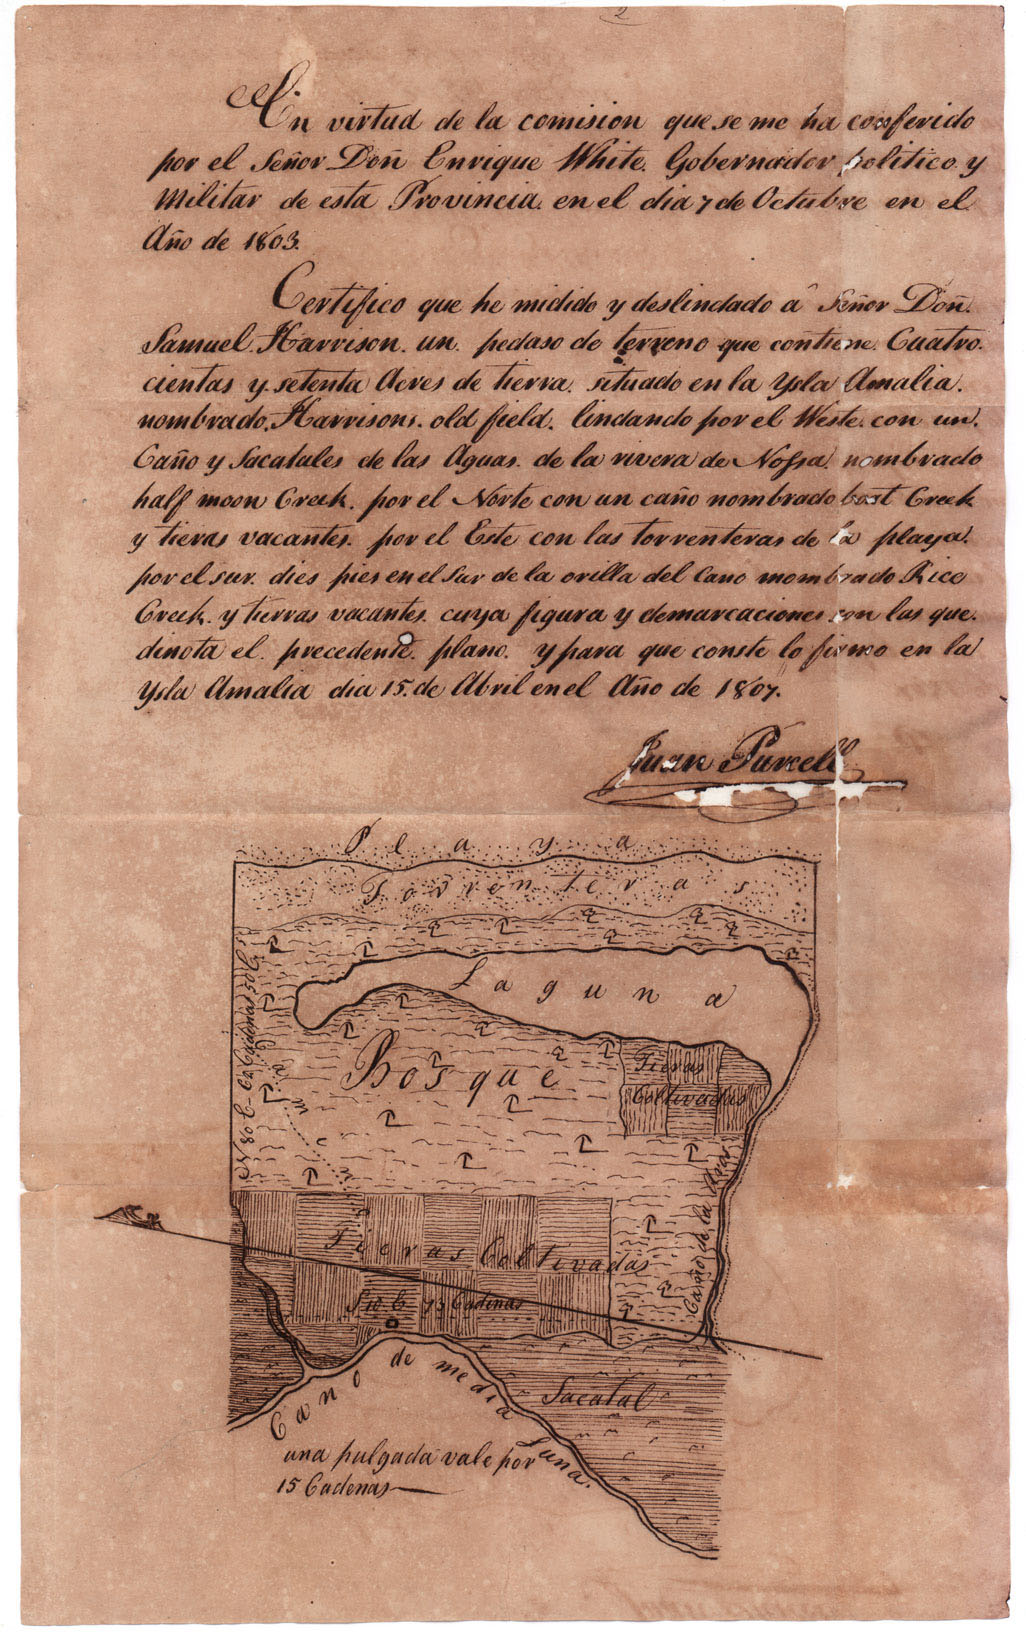 2
En virtud de la comision que se me ha conferido
por el Señor Doñ Enrique White. Gobernador politico y
Militar de esta Provincia. en el dia 7 de Octubre en el
Año de 1803.
Certifico que he midido y deslindado â Señor Doñ.
Samuel Harrison. un pedaso de terreno que contiene. Cuatro.
cientas y setenta Acres de tierra. situado en la Ysla Amalia.
nombrado. Harrisons. old field. lindando por el Weste. con un.
Caño y Sacatales de las Aguas. de la rivera de Nossa. nombrado
half moon Creek. por el Norte con un caño nombrado boat Creek
y tieras vacantes. por el Este con las torrenteras de la playa.
por el sur. dies pies en el Sur de la orilla del Cano mombrado Rice
Creek. y tierras vacantes. cuya figura y demarcaciones con las que.
dinota el. precedente. plano. y para que conste lo firmo en la
Ysla Amalia dia 15. de Abril en el Año de 1807.
Juan Purcell
Playa
Torrenteras
Laguna
Bosque
Tieras
Coltivadas
Tieras Coltivadas
S 10 E 75 Cadenas
Cano de media Luna.
Sacatal
una pulgada vale por
15 Cadenas